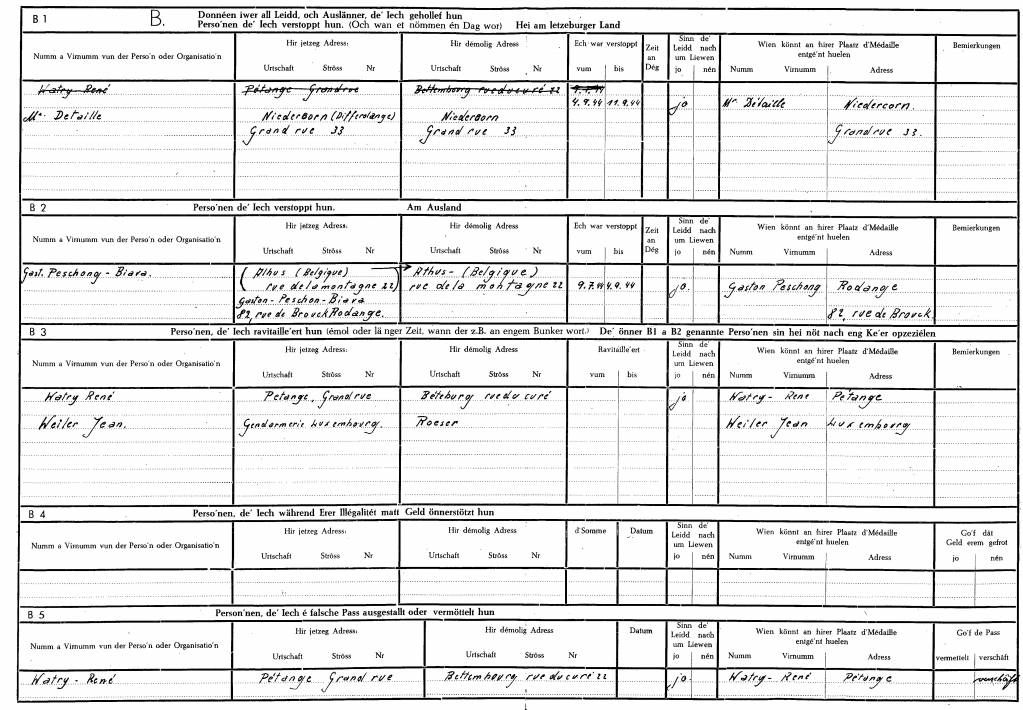 B 1 B. Donnéen iwer all Leidd, och Auslänner, de' Iech gehollef hun
Perso'nen de' Iech verstoppt hun. (Och wan et nömmen én Dag wor) Hei am letzeburger Land
Numm a Virnumm vun der Perso'n oder Organisatio'n Hir jetzeg Adress: Hir démolig Adress Ech war verstoppt Zeit an Dég Sinn de' Leidd nach um Liewen Wien könnt an hirer Plaatz d'Médaille entgé'nt huelen Bemierkungen
Urtschaft Ströss Nr Urtschaft Ströss Nr vum bis jo nén Numm Virnumm Adress
Watry René Pétange Grandrue Bettembourg rue du curé 22
4.9.44 11.9.44 jo Mr. Détaille Niedercorn.
Mr. Detaille Niedercorn (Differdange) Niedercorn
Grand rue 33 Grand rue 33 Grand rue 33.
B 2 Perso'nen de' Iech verstoppt hun. Am Ausland
Numm a Virnumm vun der Perso'n oder Organisatio'n Hir jetzeg Adress: Hir démolig Adress Ech war verstoppt Zeit an Dég Sinn de' Leidd nach um Liewen Wien könnt an hirer Plaatz d'Médaille entgé'nt huelen
Urtschaft Ströss Nr Urtschaft Ströss Nr vum bis jo nén Numm Virnumm Adress
Gast. Peschong - Biava. ( Athus (Belgique) Athus - (Belgique)
rue de la montagne 22) rue de la montagne 22 9.7.44 4.9.44 jo. Gaston Peschong Rodange
Gaston - Peschon - Biava
82, rue de Brouck Rodange. 82, rue de Brouck
B 3 Perso'nen, de' Iech ravitaille'ert hun (émol oder länger Zeit, wann der z.B. an engem Bunker wort.) De' önner B1 a B2 genannte Perso'nen sin hei nöt nach eng Ke'er opzeziélen
Numm a Virnumm vun der Perso'n oder Organisatio'n Hir jetzeg Adress: Hir démolig Adress Ravitaille'ert Sinn de' Leidd nach um Liewen Wien könnt an hirer Plaatz d'Médaille entgé'nt huelen Bemierkungen
Urtschaft Ströss Nr Urtschaft Ströss Nr vum bis jo nén Numm Virnumm Adress
Watry René Petange, Grand rue Béteburg rue du curé jo Watry - René Pétange
Weiler Jean. Gendarmerie Luxembourg. Roeser Weiler Jean Luxembourg
B 4 Perso'nen, de' Iech während Erer Illégalitét matt Geld önnerstötzt hun
Numm a Virnumm vun der Perso'n oder Organisatio'n Hir jetzeg Adress: Hir démolig Adress d'Somme Datum Sinn de' Leidd nach um Liewen Wien könnt an hirer Plaatz d'Médaille entgé'nt huelen Go'f dât Geld erem gefrot
Urtschaft Ströss Nr Urtschaft Ströss Nr jo nén Numm Virnumm Adress jo nén
B 5 Person'nen, de' Iech é falsche Pass ausgestallt oder vermöttelt hun
Numm a Virnumm vun der Perso'n oder Organisatio'n Hir jetzeg Adress: Hir démolig Adress Datum Sinn de' Leidd nach um Liewen Wien könnt an hirer Plaatz d'Médaille entgé'nt huelen Go'f de Pass
Urtschaft Ströss Nr Urtschaft Ströss Nr jo nén Numm Virnumm Adress vermettelt verschäft
Watry - René Pétange Grand rue Bettembourg rue du curé 22 jo. Watry - René Pétange verschäft